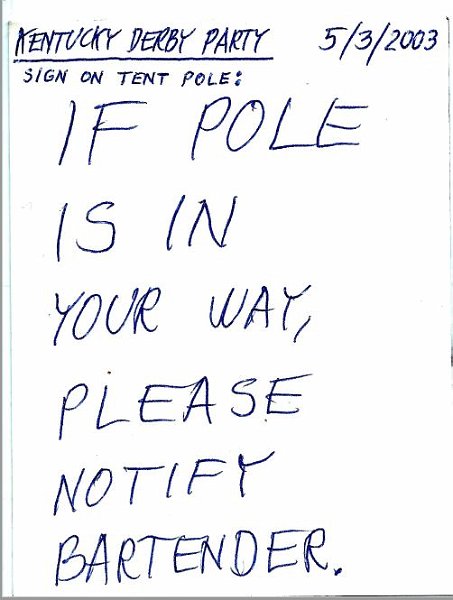 KENTUCKY DERBY PARTY 5/3/2003
SIGN ON TENT POLE:
IF POLE
IS IN
YOUR WAY,
PLEASE
NOTIFY
BARTENDER.